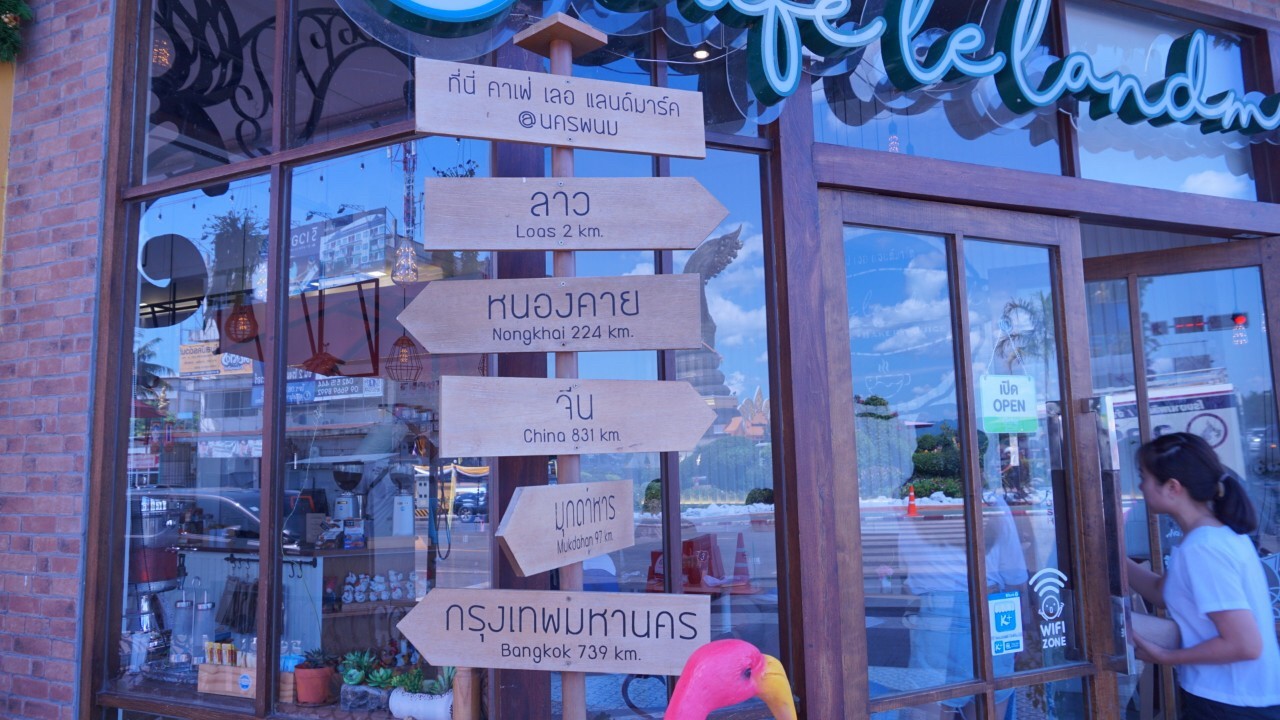 Cafe le landm
ที่นี่ คาเฟ่ เลอ แลนด์มาร์ค
@นครพนม
ลาว
Loas 2 km.
หนองคาย
Nongkhai 224 km.
จีน
China 831 km.
มุกดาหาร
Mukdahan 97 km.
กรุงเทพมหานคร
Bangkok 739 km.
เปิด
OPEN
K+
WIFI
ZONE